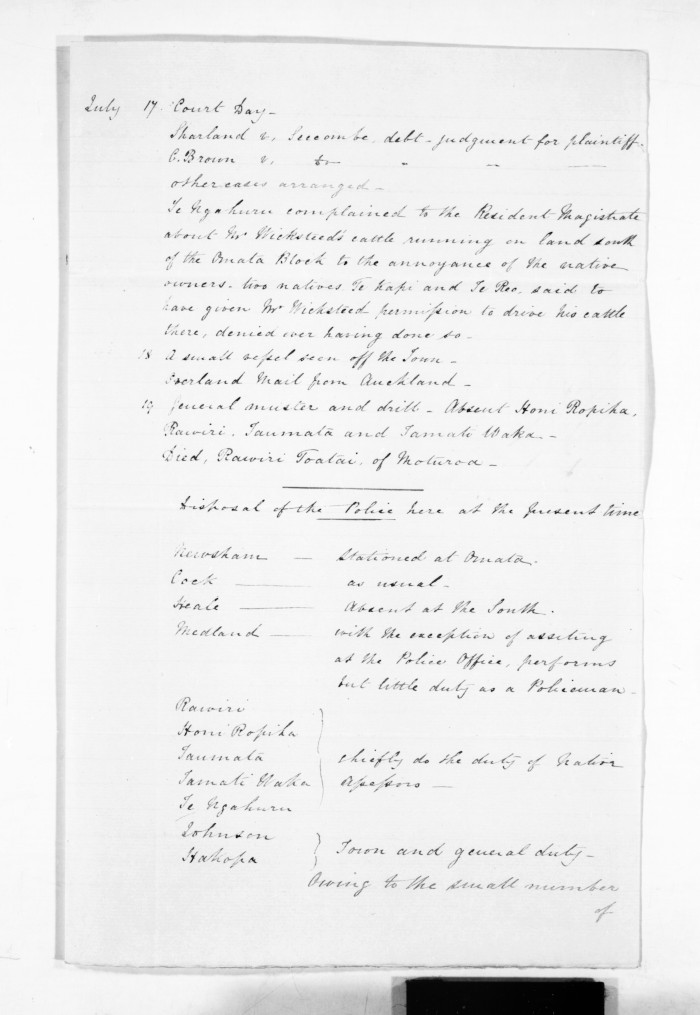 July 17. Court Day -
Sharland v. Seccombe. debt - judgment for plaintiff.
C. Brown v. do " " —
other cases arranged -
Te Ngahuru complained to the Resident Magistrate
about Mr Wicksteed's cattle running on land south
of the Omata Block to the annoyance of the native
owners - two natives Te Kapi and Te Reo, said to
have given Mr Wicksteed permission to drive his cattle
there, denied ever having done so -
18 A small vessel seen off the Town -
Overland Mail from Auckland -
19 General muster and drill - Absent Honi Ropiha,
Rawiri, Taumata and Tamati Waka -
Died, Rawiri Toatai, of Moturoa -
Disposal of the Police here at the present time
Newsham — Stationed at Omata.
Cock — as usual -
Heale — Absent at the South.
Medland — with the exception of assisting
at the Police Office, performs
but little duty as a Policeman -
Rawiri
Honi Ropiha
Taumata chiefly do the duty of Native
Tamati Waka Assessors —
Te Ngahuru
Johnson
Hakopa Town and general duty -
Owing to the small number
of